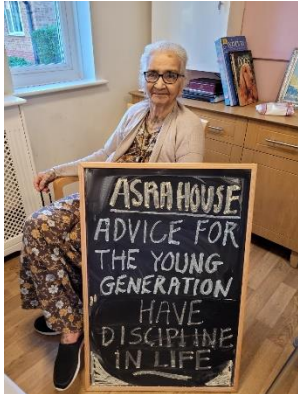 ASRA HOUSE
ADVICE FOR
THE YOUNG
GENERATION
HAVE
DISCIPLINE
IN LIFE